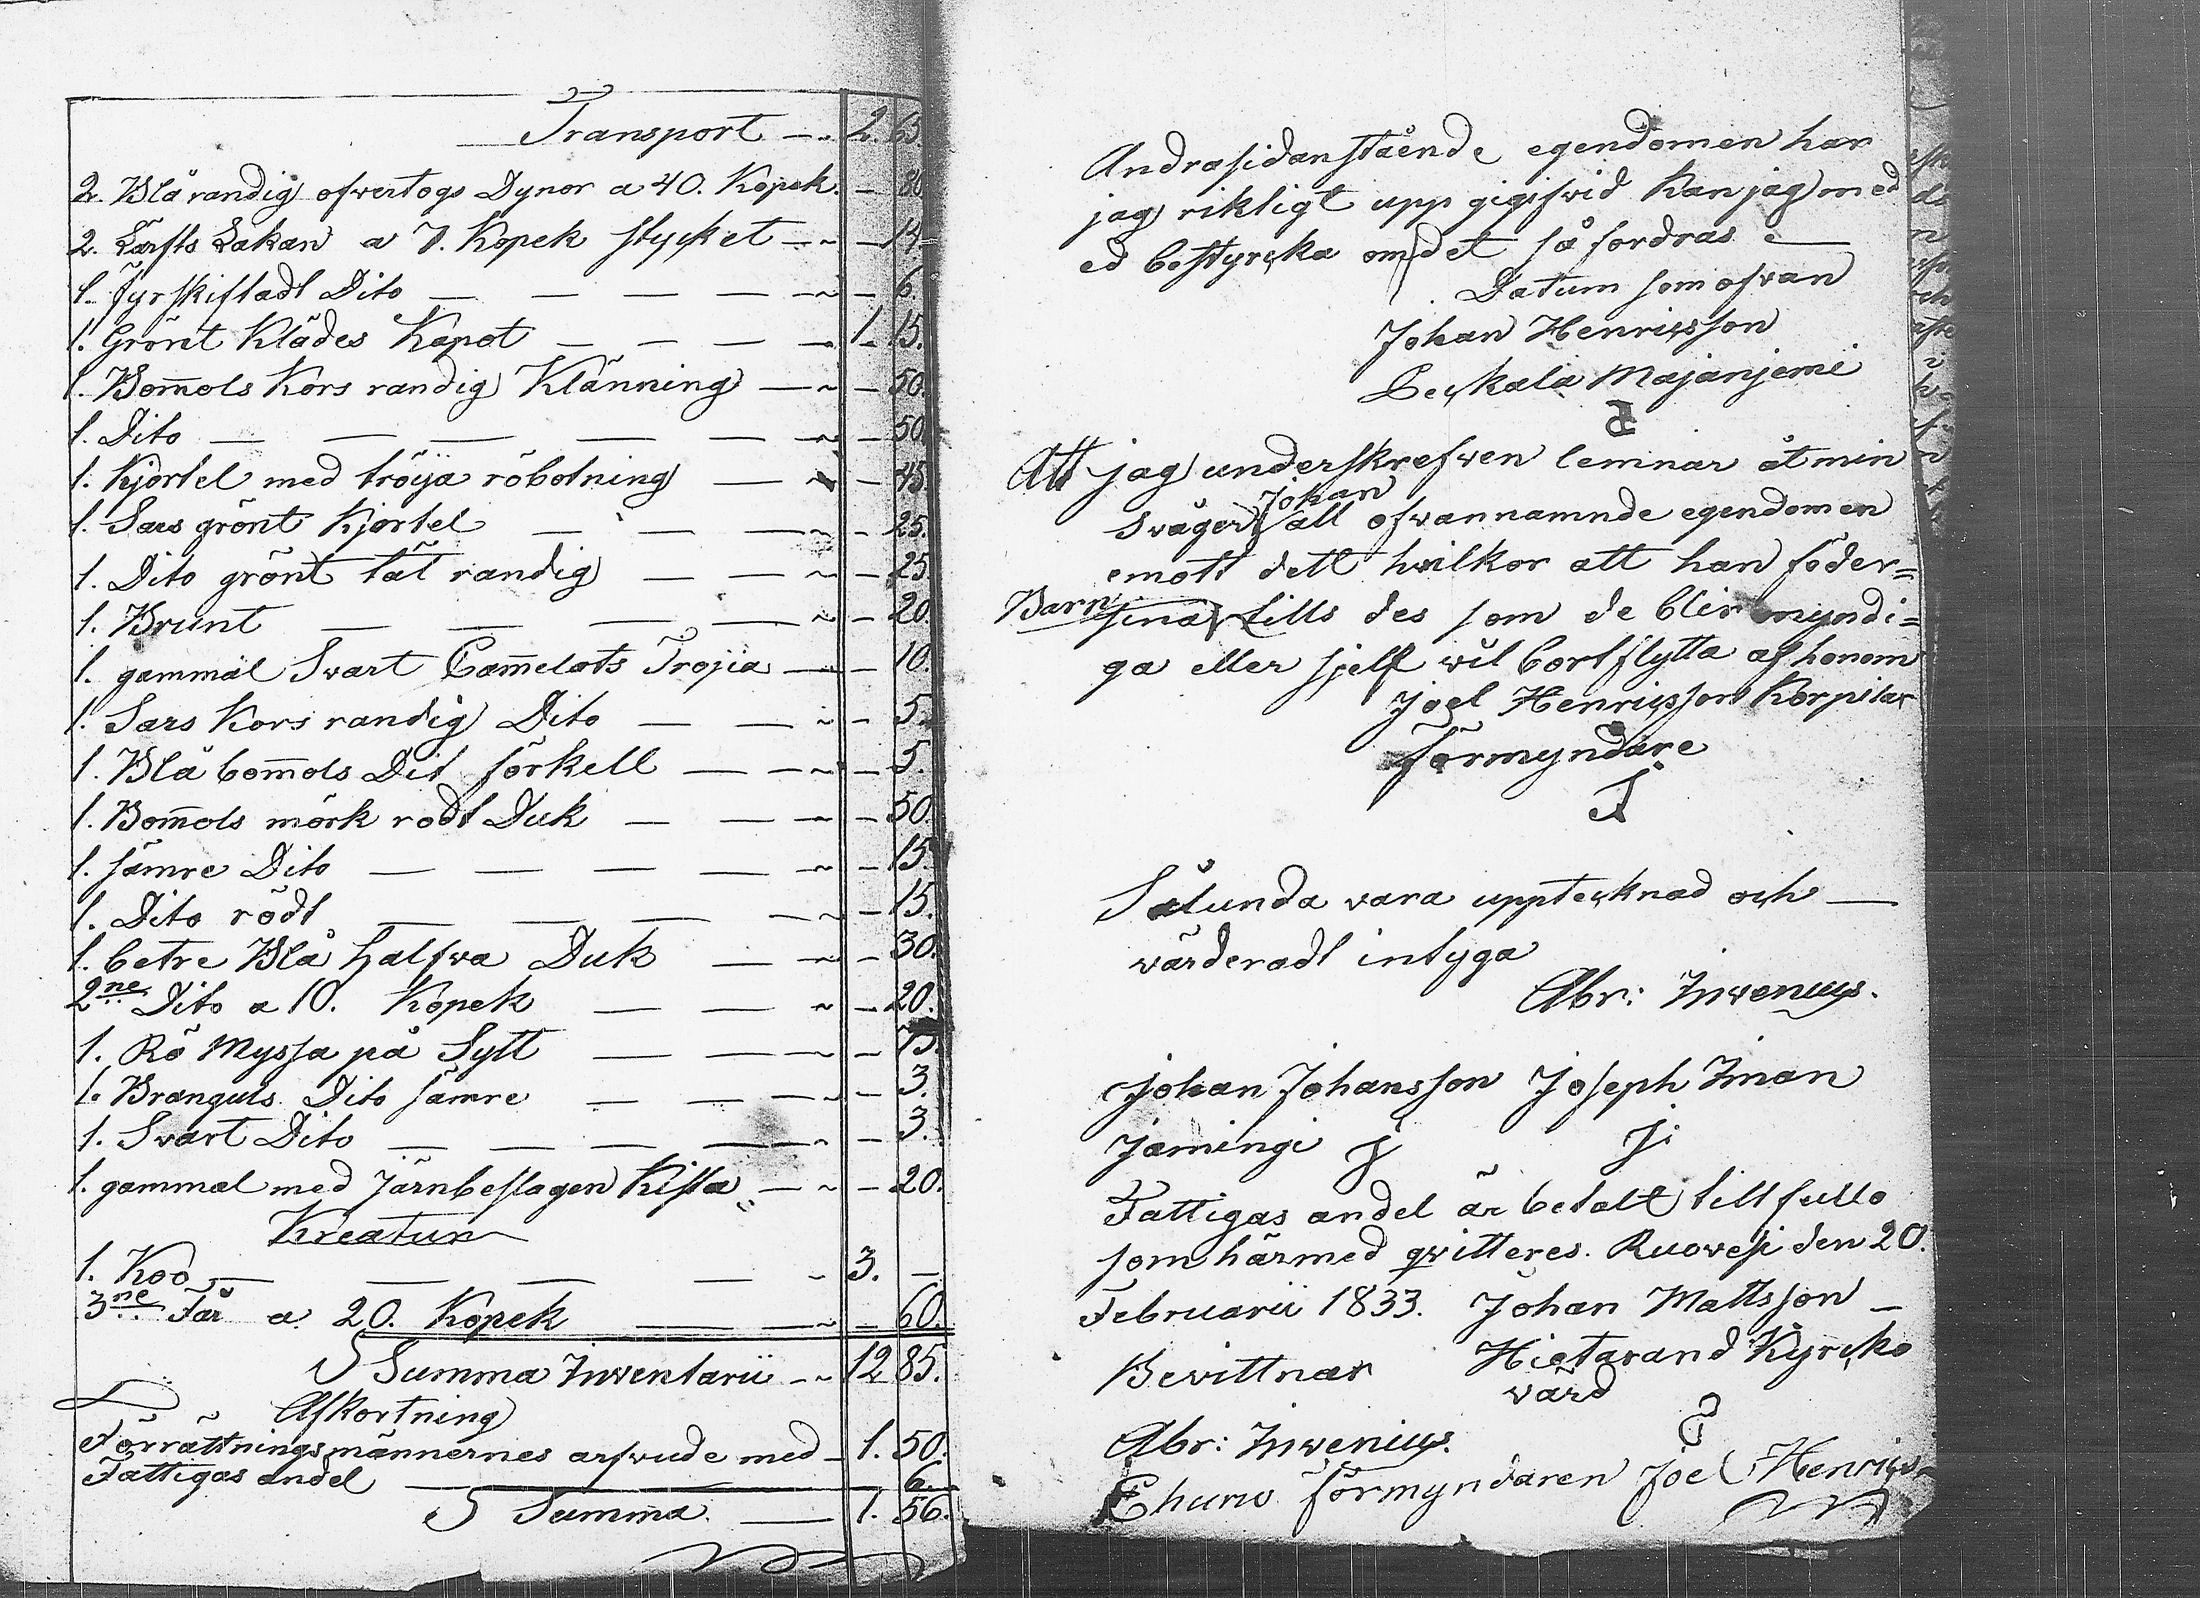 Transport 2. 65
2. Blårandig ofvertogs Dynor a 40. Kopek. 80
2. Larfts Lakan a 7. Kopek stycket 14
1. Fyrskiftadt Dito 6.
1. Grönt Klädes Kapot 1. 15.
1. Bom̄ols Kors randig Klänning 50.
1. Dito 50
1. Kjortel med tröija röbotning 45
1. Sars grönt Kjortel 25.
1. Dito grönt tät randig 25
1. Brunt 20.
1. gammal Svart Cam̄elots Trojia 10.
1. Sars Kors randig Dito 5.
1. Blå bom̄ols Dit förkell 5.
1. Bom̄ols mörk rodt Duk 50.
1. sämre Dito 15.
1. Dito rödt 15.
1. betre Blå halfva Duk 30.
2ne Dito a 10. Kopek 20.
1. Rö Myssa på Sytt 75.
1. Branguls Dito sämre 3.
1. Svart Dito 3.
1. gammal med Järnbeslagen Kista 20.
Kreatur
1. Koo 3. —
3ne Får a 20. Kopek 60.
Summa Inventarii 12 85.
Afkortning
Förrättningsmännernes arfvude med 1. 50.
Fattigas andel 6.
Summa 1. 56.
Andrasidanstående egendomen har
jag riktigt upp gigifvid kan jag med
ed bestyrcka om det så fordras
Datum som ofvan
Johan Henricsson
Leckala Majanjemi
Att jag underskrefven lemnar åt min
Johan
Svåger all ofvannamnde egendomen
emott dett hwilkor att han föder=
Barn sina tills des som de blir myndi=
ga eller sjelf wil bortflytta af honom
Joel Henricsson Korpilax
förmyndare
Sålunda vara upptecknad och
värderadt intyga
Abr: Inwenius.
Johan Johansson Joseph Iman
Jämingi
Fattigas andel är betalt till fullo
som härmed qvitteres. Ruovesi den 20.
Februarii 1833. Johan Mattsson
Hietarand Kyrcko
Bevittnar värd
Abr: Inwenius.
Ehuru förmyndaren Joel Henrics